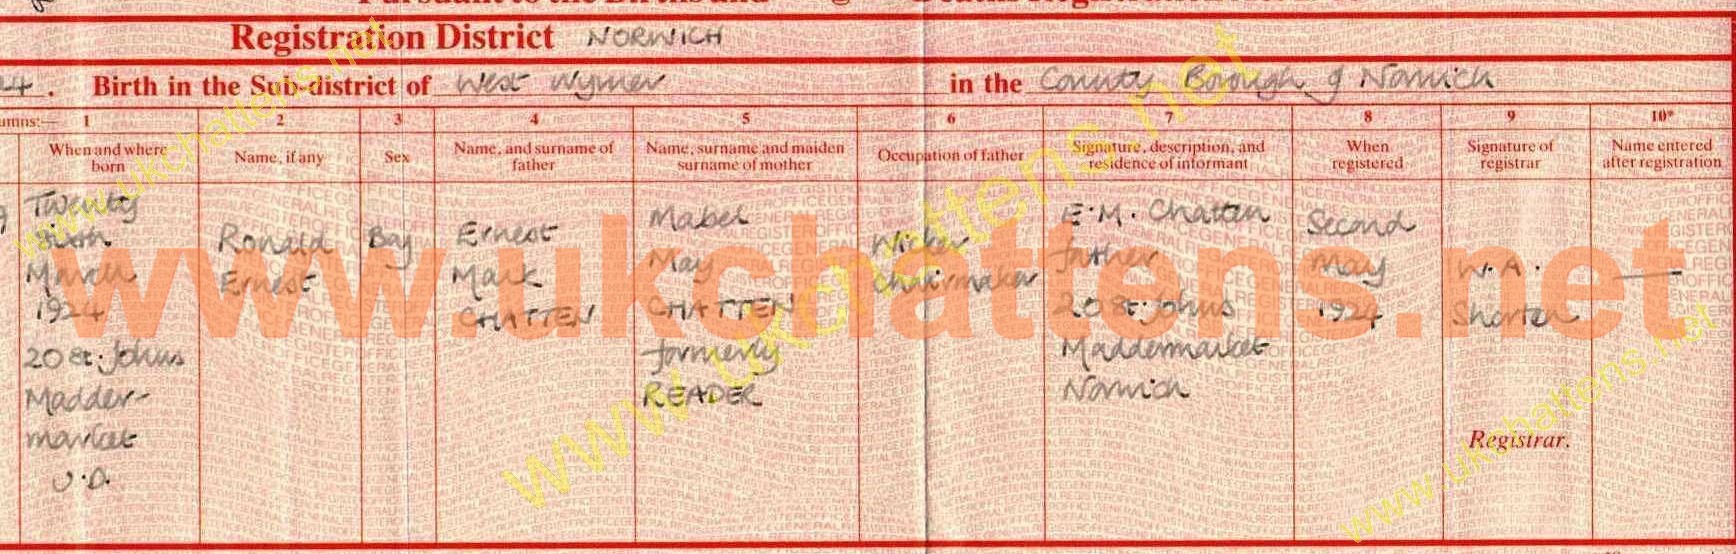 Registration District NORWICH
24. Birth in the Sub-district of West Wymer in the County Borough of Norwich
Columns:— 1 2 3 4 5 6 7 8 9 10*
When and where born
Name, if any
Sex
Name, and surname of father
Name, surname and maiden surname of mother
Occupation of father
Signature, description, and residence of informant
When registered
Signature of registrar
Name entered after registration
Twenty
Sixth
March
1924
20 St. Johns
Madder-
market
U.D.
Ronald
Ernest
Boy
Ernest
Mark
CHATTEN
Mabel
May
CHATTEN
formerly
READER
Wicker
Chairmaker
E. M. Chatten
father
20 St. Johns
Maddermarket
Norwich
Second
May
1924
W. A.
Shorten
Registrar.
www.ukchattens.net
www.ukchattens.net
www.ukchattens.net
www.ukchattens.net